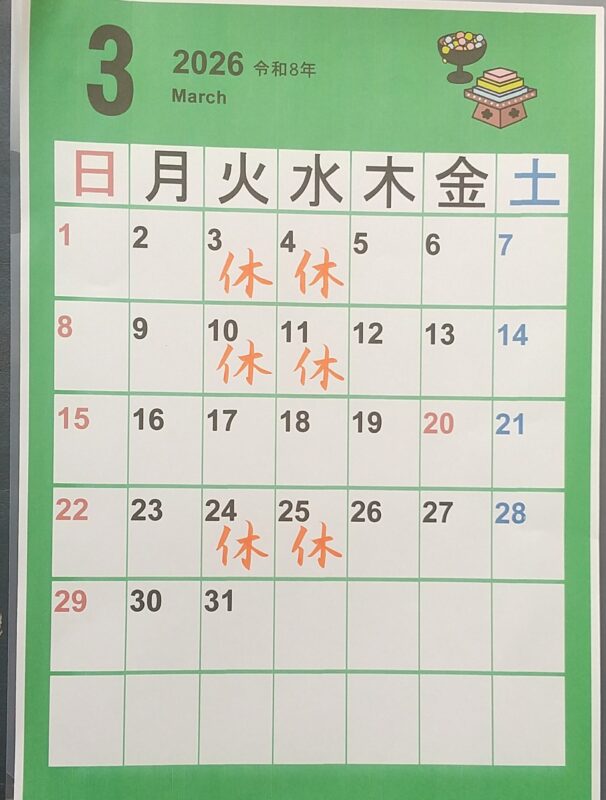 3
2026 令和8年
March
日 月 火 水 木 金 土
1 2 3 4 5 6 7
休 休
8 9 10 11 12 13 14
休 休
15 16 17 18 19 20 21
22 23 24 25 26 27 28
休 休
29 30 31